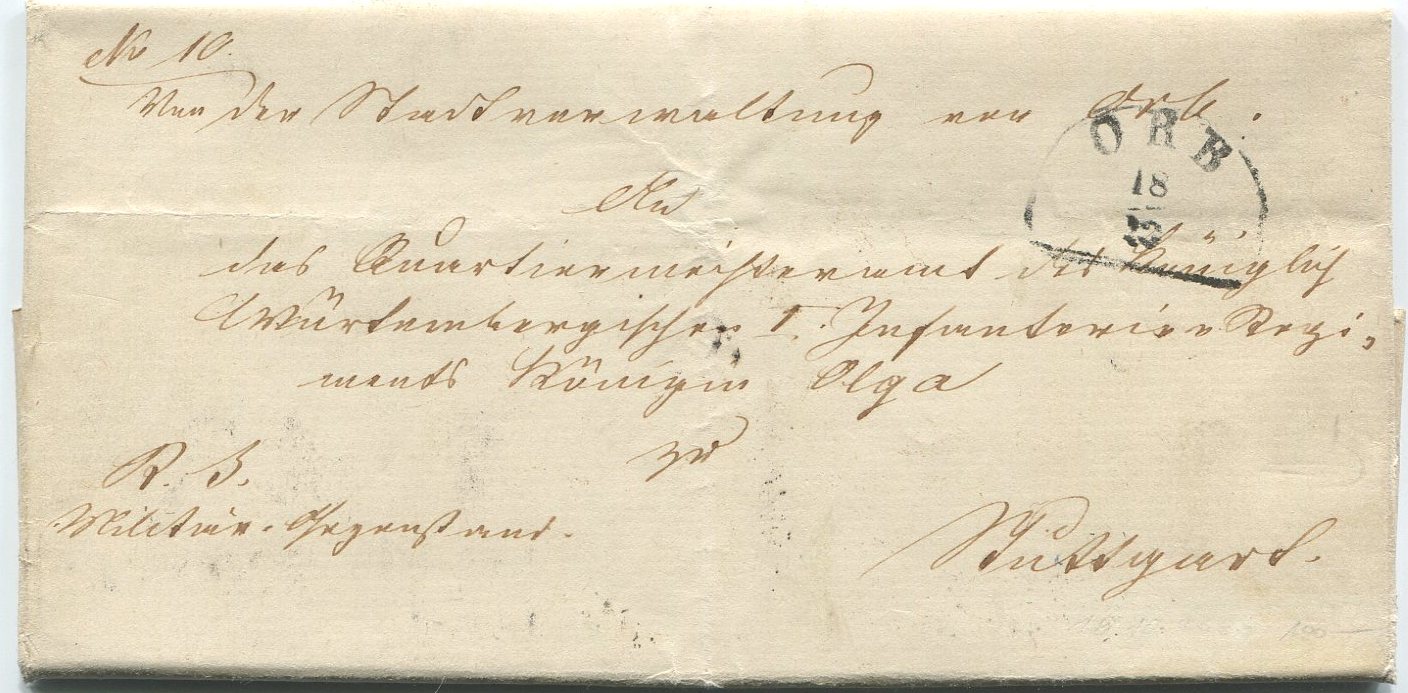 No 10.
Von der Stadtverwaltung von Orb.
ORB
18
An
das Quartiermeisteramt des Königlich
Würtembergischen 1. Infanterie Regi-
ments Königin Olga
zu
R. S.
Militär-Gegenstand.
Stuttgart.